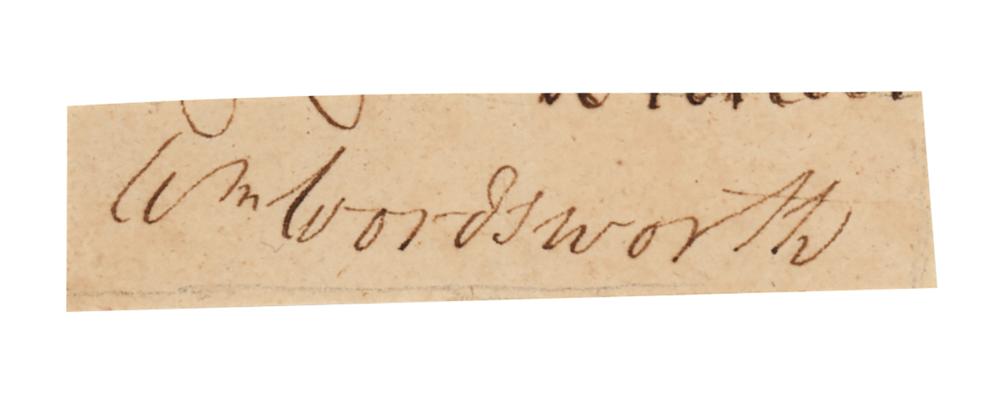 Wm Wordsworth